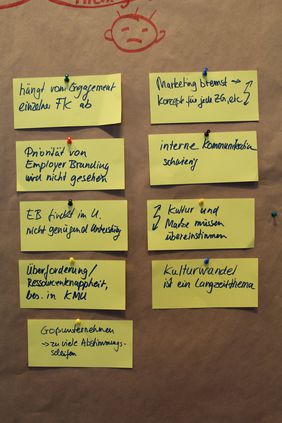 hängt vom Engagement
einzelner FK ab
Priorität von
Employer Branding
wird nicht gesehen
EB findet im U.
nicht genügend Unterstützung
Überforderung/
Ressourcenknappheit,
bes. in KMU
Großunternehmen
→ zu viele Abstimmungs-
schleifen
Marketing bremst →
Konzept für jede ZG, etc
interne Kommunikation
schwierig
Kultur und
Marke müssen
übereinstimmen
Kulturwandel
ist ein Langzeitthema